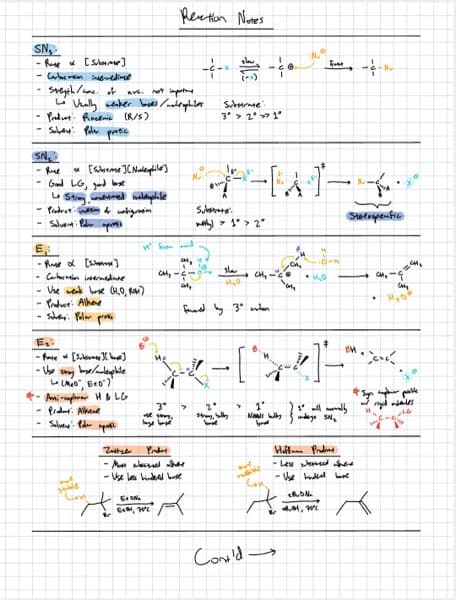 Reaction Notes
SN₁:
- Rate ∝ [Substrate]
- Carbocation intermediate
- Strength/conc. of nuc. not important
↳ Usually weaker bases/nucleophiles
- Product: Racemic (R/S)
- Solvent: Polar protic
-C-X slow (-X) -C⊕ Nu⊖ Fast -C-Nu
Substrate:
3° > 2° >> 1°
SN₂:
- Rate ∝ [Substrate][Nucleophile]
- Good LG, good base
↳ Strong, nucleophile
- Product:
- Solvent: Polar aprotic
Substrate:
methyl > 1° > 2°
Stereospecific
E₁:
- Rate ∝ [Substrate]
- Carbocation intermediate
- Use weak base (H₂O, ROH)
- Product: Alkene
- Solvent: Polar protic
H⁺ from acid
slow
H₂O
+ H₂O
+ H₃O⊕
Favored by 3° carbon
E₂:
- Rate ∝ [Substrate][base]
- Use strong base/nucleophile
↳ (MeO⁻, EtO⁻)
- Anti-coplanar H & LG
- Product: Alkene
- Solvent: Polar aprotic
3° > 2° > 1°
use strong, base
strong, bulky base
Needs bulky base
1° will normally undergo SN₂
BH
Syn coplanar possible
w/ rigid molecules
Zaitsev Product
- More substituted alkene
- Use less hindered base
more stable
EtONa
EtOH, 70°C
Br
Hoffman Product
- Less substituted alkene
- Use hindered base
tBuONa
tBuOH, 70°C
Br
Cont'd →